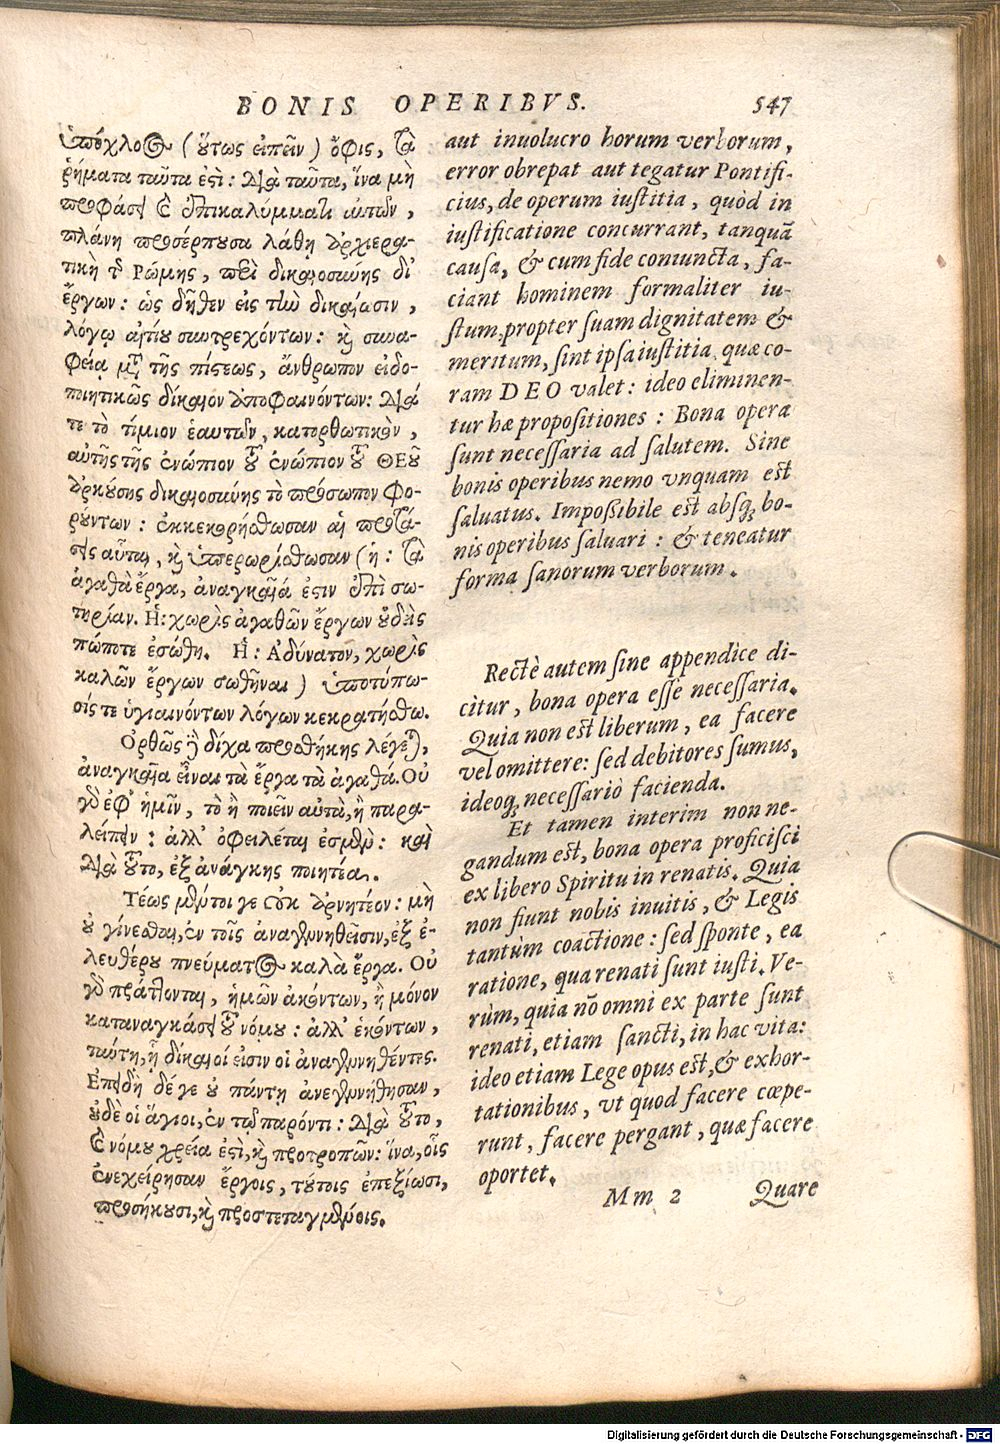 BONIS OPERIBVS. 547
ὑπόχλος (ὅτως εἰπεῖν) ὄφις, τὰ
ῥήματα ταῦτα ἐστὶ: διὰ ταῦτα, ἵνα μὴ
προφάσει καὶ ἐπικαλύμματι αὐτῶν,
πλάνη προσέρπουσα λάθῃ ἀρχιερα-
τικὴ τῆς Ρώμης, περὶ δικαιοσύνης δι'
ἔργων: ὡς δῆθεν εἰς τὴν δικαίασιν,
λόγῳ αἰτίου συντρεχόντων: καὶ συνα-
φείᾳ μετὰ τῆς πίστεως, ἄνθρωπον εἰδο-
ποιητικῶς δίκαιον ἀποφαινόντων: διά
τε τὸ τίμιον ἑαυτῶν, κατορθωτικὸν,
αὐτῆς τῆς ἐνώπιον τοῦ ἐνώπιον τοῦ ΘΕΟῦ
ἀρκούσης δικαιοσύνης τὸ πρόσωπον φο-
ρούντων: ἐκκεκορήσθωσαν αἱ προτά-
σεις αὗται, καὶ ὑπερωρίσθωσαν (ἡ: τὰ
ἀγαθὰ ἔργα, ἀναγκαῖά ἐστιν ἐπὶ σω-
τηρίαν. Ἡ: χωρὶς ἀγαθῶν ἔργων οὐδεὶς
πώποτε ἐσώθη. Ἡ: Ἀδύνατον, χωρὶς
καλῶν ἔργων σωθῆναι) ὑποτύπω-
σίς τε ὑγιαινόντων λόγων κεκρατήσθω.
Ὀρθῶς δὲ δίχα προσθήκης λέγεται,
ἀναγκαῖα εἶναι τὰ ἔργα τὰ ἀγαθά. Οὐ
γὰρ ἐφ' ἡμῖν, τὸ ἢ ποιεῖν αὐτὰ, ἢ παρα-
λείπειν: ἀλλ' ὀφειλέται ἐσμὲν: καὶ
διὰ τοῦτο, ἐξ ἀνάγκης ποιητέα.
Τέως μέντοι γε οὐκ ἀρνητέον: μὴ
οὐ γίνεσθαι, ἐν τοῖς ἀναγεννηθεῖσιν, ἐξ ἐ-
λευθέρου πνεύματος καλὰ ἔργα. Οὐ
γὰρ πράττονται, ἡμῶν ἀκόντων, ἢ μόνον
καταναγκάσει τοῦ νόμου: ἀλλ' ἑκόντων,
ταύτῃ, ᾗ δίκαιοί εἰσιν οἱ ἀναγεννηθέντες.
Επειδὴ δέ γε οὐ πάντῃ ἀνεγεννήθησαν,
οὐδὲ οἱ ἅγιοι, ἐν τῷ παρόντι: διὰ τοῦτο,
καὶ νόμου χρεία ἐστὶ, καὶ προτροπῶν: ἵνα, οἷς
ἐνεχείρησαν ἔργοις, τούτοις ἐπεξίωσι,
προσήκουσι, καὶ προστεταγμένοις.
aut inuolucro horum verborum,
error obrepat aut tegatur Pontifi-
cius, de operum iustitia, quòd in
iustificatione concurrant, tanquã
causa, & cum fide coniuncta, fa-
ciant hominem formaliter iu-
stum, propter suam dignitatem &
meritum, sint ipsa iustitia, quæ co-
ram DEO valet: ideo eliminen-
tur hæ propositiones: Bona opera
sunt necessaria ad salutem. Sine
bonis operibus nemo vnquam est
saluatus. Impossibile est absq; bo-
nis operibus saluari: & teneatur
forma sanorum verborum.
Rectè autem sine appendice di-
citur, bona opera esse necessaria.
Quia non est liberum, ea facere
vel omittere: sed debitores sumus,
ideoq; necessariò facienda.
Et tamen interim non ne-
gandum est, bona opera proficisci
ex libero Spiritu in renatis. Quia
non fiunt nobis inuitis, & Legis
tantùm coactione: sed sponte, ea
ratione, qua renati sunt iusti. Ve-
rùm, quia nõ omni ex parte sunt
renati, etiam sancti, in hac vita:
ideo etiam Lege opus est, & exhor-
tationibus, vt quod facere cœpe-
runt, facere pergant, quæ facere
oportet.
Mm 2 Quare
Digitalisierung gefördert durch die Deutsche Forschungsgemeinschaft - DFG